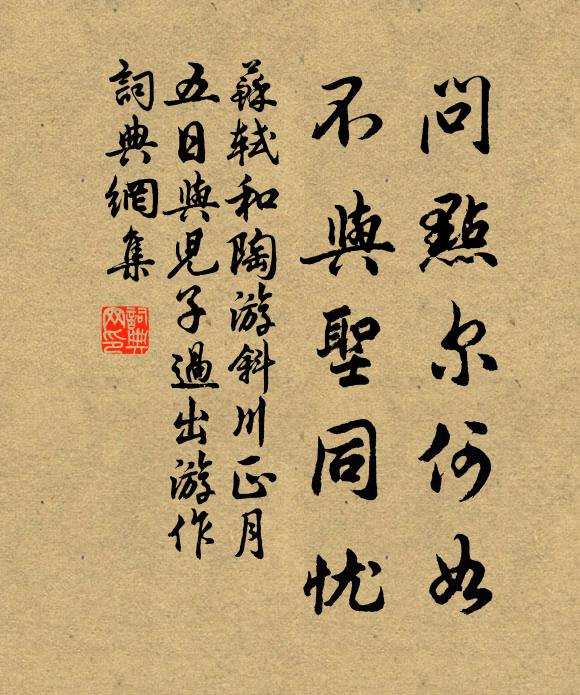 問點尔何如
不與聖同忧
蘇軾和陶游斜川正月
五日與児子過出游作
詞典網集
詞典
网印